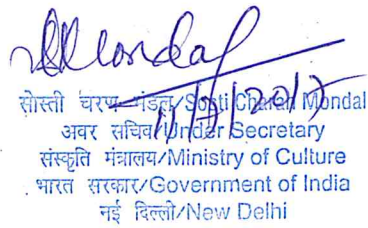 Mondal
सोस्ती चरण मंडल/Sosti Charan Mondal
अवर सचिव/Under Secretary
संस्कृति मंत्रालय/Ministry of Culture
भारत सरकार/Government of India
नई दिल्ली/New Delhi